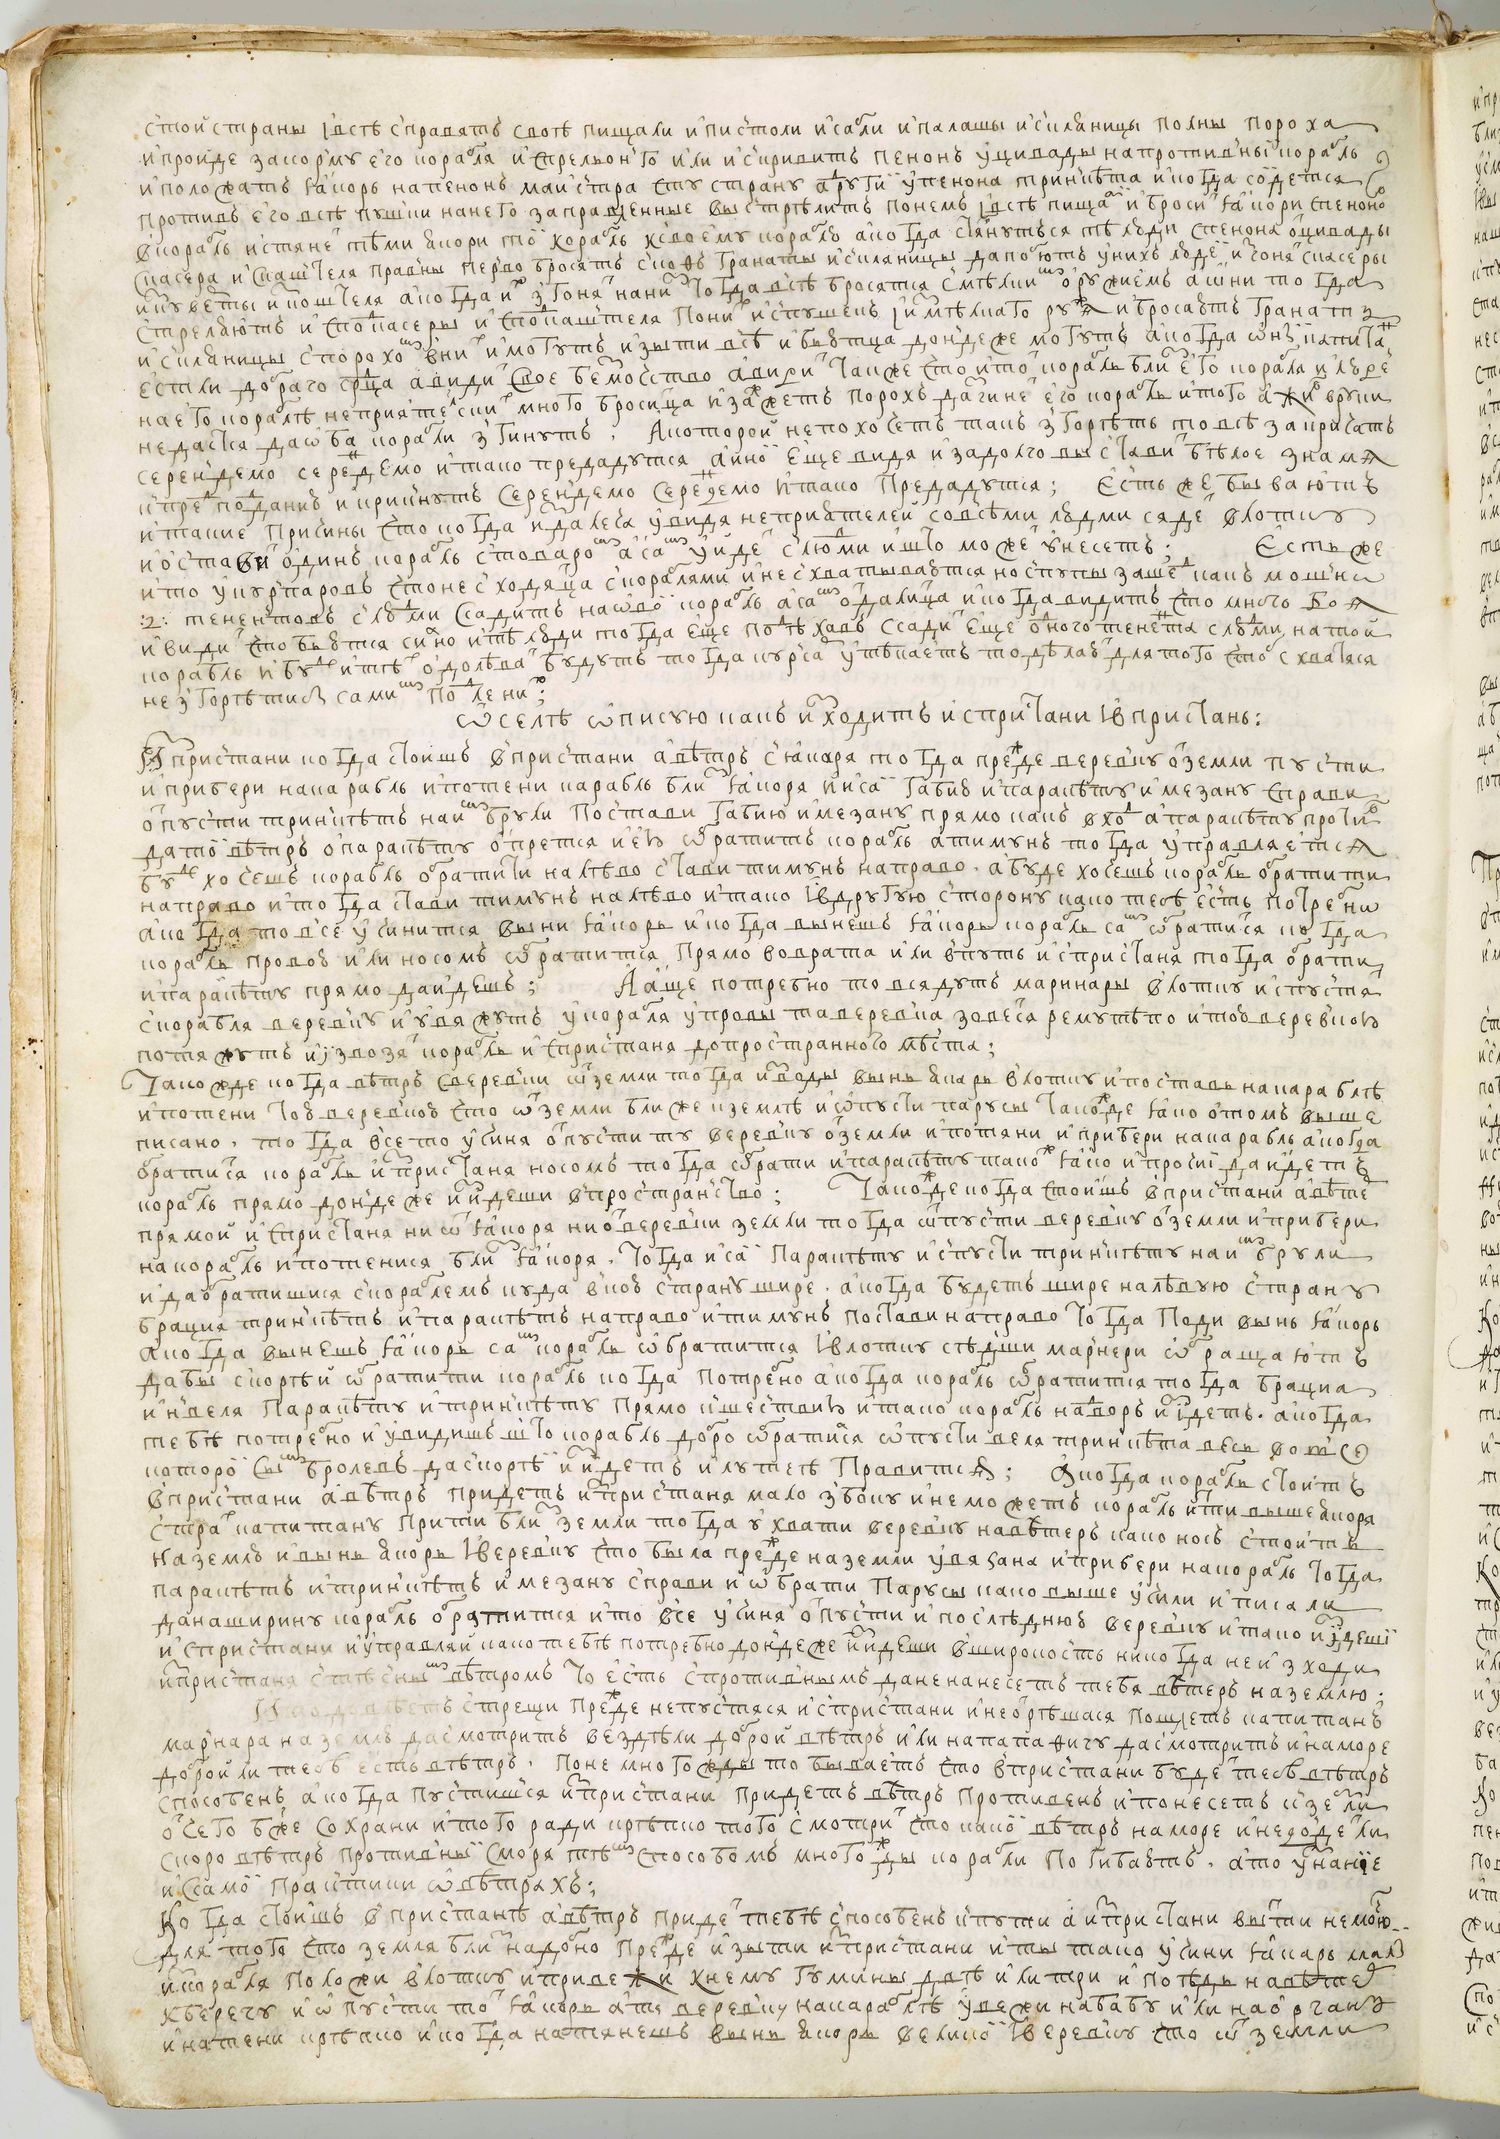 стой страны и всѣ справятъ своѣ пищали и пистоли и сабли и палашы и скляницы полны пороха
и пройде за корму его корабля и стрельѡнѣго или искривитъ пенонъ у цивады на противны корабль
и положатъ якорь на пенонъ маистра ту страну а другїи у пенона тринкѣта и когда сойдется
противъ его всѣ пушки на него заправленные выстрѣлитъ по немъ и всѣ пищали и броси якори с пеноно
в корабль и стяне тѣми якори той корабль к своему кораблю а когда стянуться тѣ люди с пенона ѿ цивады
с касера и с каштеля правны перво бросятъ с огнь гранаты и скляницы да побютъ у них людей и гоня с касеры
и куветы и каштеля а когда их згоня на ни тогда всѣ бросятся с мѣлкимъ оружиемъ а ѡни тогда
стреляютъ и с касеры и с каштеля по них и с пушекъ и мѣлкаго ружя и бросаютъ гранаты
и скляницы с порохомъ в них и могутъ изыти всѣ и бьютца дондеже могутъ а когда ѡнъ капитан
естли добраго срдца а види свое безмощство а види также что и то корабль близ его корабля и люде
на его кораблѣ неприятелских много бросица и зажжетъ порохъ да гине его корабль и того а жи в руки
не дастся да ѡба корабли згинутъ. А которой не похочетъ такъ згорѣть то всѣ закричатъ
серендемо серендемо и тако предадутся а иной еще видя и задолго выстави бѣлое знамя
и пре поданиъ и крикнутъ серендемо серендемо и тако предадутся; Есть же бываютъ
и такие причины что когда издалеча увидя неприятелей со всѣми людми сяде в лотку
и оставя одинъ корабль с товаромъ а самъ уйде с людми и што може унесетъ; Есть же
и то у курзаровъ что не сходяца с кораблями и не схватываются но с пупы заше какъ мошно
:2: тенентовъ с людми ссадитъ на ѡвой корабль а самъ одалица и когда видитъ что много боя
и види что бьются силно и тѣ люди тогда еще подъѣхавъ ссади еще одного тенента с людми на той
корабль и бу и тѣ одолѣва будутъ тогда курза утѣкаетъ то дѣлаю для того что схватяся
не згорѣти сами подле них;
ѿселѣ ѡписую какъ исходитъ ис пристани и в пристань:
Ис пристани когда стоишъ в пристани а вѣтръ с якоря тогда прежде веревку ѿ земли пусти
и прибери на карабль и потени карабль близ якоря и иса габию и паракѣту и мезану справи
ѡпусти тринкѣтъ на им брули постави габию и мезану прямо какъ вход а паракѣту проти
да той вѣтръ о паракѣту опретса и ею ѡбратитъ корабль а тимунъ тогда управляется
буде хочешъ корабль обратити налѣво стави тимунъ направо. а буде хочешъ корабль обратити
направо и тогда стави тимунъ налѣво и тако и в другую сторону како тебѣ есть потребно
а когда то все учинится выни якорь и когда вынешъ якорь корабль самъ ѡбратится когда
корабль провою или носомъ ѡбратится прямо во врата или в путь ис пристаня тогда обрати
и паракѣту прямо да идешъ; А аще потребно то всядутъ маринары в лотку и спустя
с корабля веревку и увяжутъ у корабля у провы та веревка зовется ремутѣло и тою веревкою
потяжутъ и извозя корабль ис пристаня до пространного мѣста;
Такожде когда вѣтръ с веревки ѿ земли тогда из воды вынь якарь в лотку и поставь на караблѣ
и потени тою веревкою что ѿ земли ближе к землѣ и ѡпусти парусы такожде яко о томъ выше
писано. тогда все то учиня опусти ту веревку ѿ земли и потяни и прибери на карабль а когда
обратится корабль ис пристаня носомъ тогда обрати и паракѣту тако яко и прочиї да идетъ
корабль прямо дондеже изыдеши в пространство; Такожде когда стоишъ в пристани а вѣтръ
прямой ис пристаня ни ѿ якоря ни ѿ веревки земли тогда ѿпусти веревку ѿ земли и прибери
на корабль и потенися близ якоря. тогда иса паракѣту и спусти тринкѣту на им брули
и да обратишися с кораблемъ куда в кою страну шире. а когда будетъ шире на лѣвую страну
брацуя тринкѣтъ и паракѣтъ направо и тимунъ постави направо тогда поди вынь якорь
а когда вынешъ якорь самъ корабль ѡбратится и в лотку сѣдши марнери ѡбращаютъ
да бы скорѣй ѡбратити корабль когда потребно а когда корабль ѡбратится тогда брацуа
и н веля паракѣту и тринкѣту прямо к шествию и тако корабль на дворъ изыдетъ. а когда
тебѣ потребно и увидишъ што корабль добро ѡбратился ѡпусти веля тринкѣта весь вотсе
которой с ымъ бролевъ да скорѣ изыдетъ и лутчѣ правится; А когда корабль стоитъ
в пристани а вѣтръ придетъ ис пристаня мало з боку и не можетъ корабль ити выше якоря
стра капитану прити близ земли тогда ухвати веревку на вѣтеръ како носъ стоитъ
на землю и вынь якорь и веревку что была прежде на земли увязана и прибери на корабль тогда
паракѣтъ и тринкѣтъ и мезану справи и ѡбрати парусы како выше учили и писали
да на ширину корабль обратится и то все учиня опусти и послѣднюю веревку и тако изыдеши
ис пристани и управляй како тебѣ потребно дондеже изыдеши в широкость никогда не изходи
ис пристаня с тѣснымъ вѣтромъ то есть с противнымъ да не нанесетъ тебя вѣтеръ на землю;
стрещи прежде не пустяся ис пристани и не обрѣшася пошлетъ капитанъ
марнара на землю да смотритъ вездѣли доброй вѣтръ или на папафигу да смотритъ и на море
доброй ли тебѣ есть вѣтръ. поне многожды то бываетъ что в пристани буде тебѣ вѣтръ
способенъ а когда пустишся ис пристани придетъ вѣтръ противенъ и понесетъ к земли
ѿ сего бже сохрани и того ради крѣпко того смотри что какой вѣтръ на море и не додели
скоро вѣтръ противны с моря тѣмъ способомъ многожды корабли погибаютъ. а то узнание
и самой практики ѡ вѣтрахъ;
Когда стоишъ в пристанѣ а вѣтръ приде тебѣ способенъ к пути а ис пристани выти немощно
для того что земля близ надобно прежде изыти ис пристани и ты тако учини якарь малъ
ис корабля положи в лотку и привежи к нему гумины двѣ или три и поѣдь на вѣте
к берегу и ѡпусти той якорь а тѣ веревку на караблѣ увежи на бабу или на оргаnъ
и натени крѣпко и когда натянешъ выни якорь великой и веревку что ѿ земли